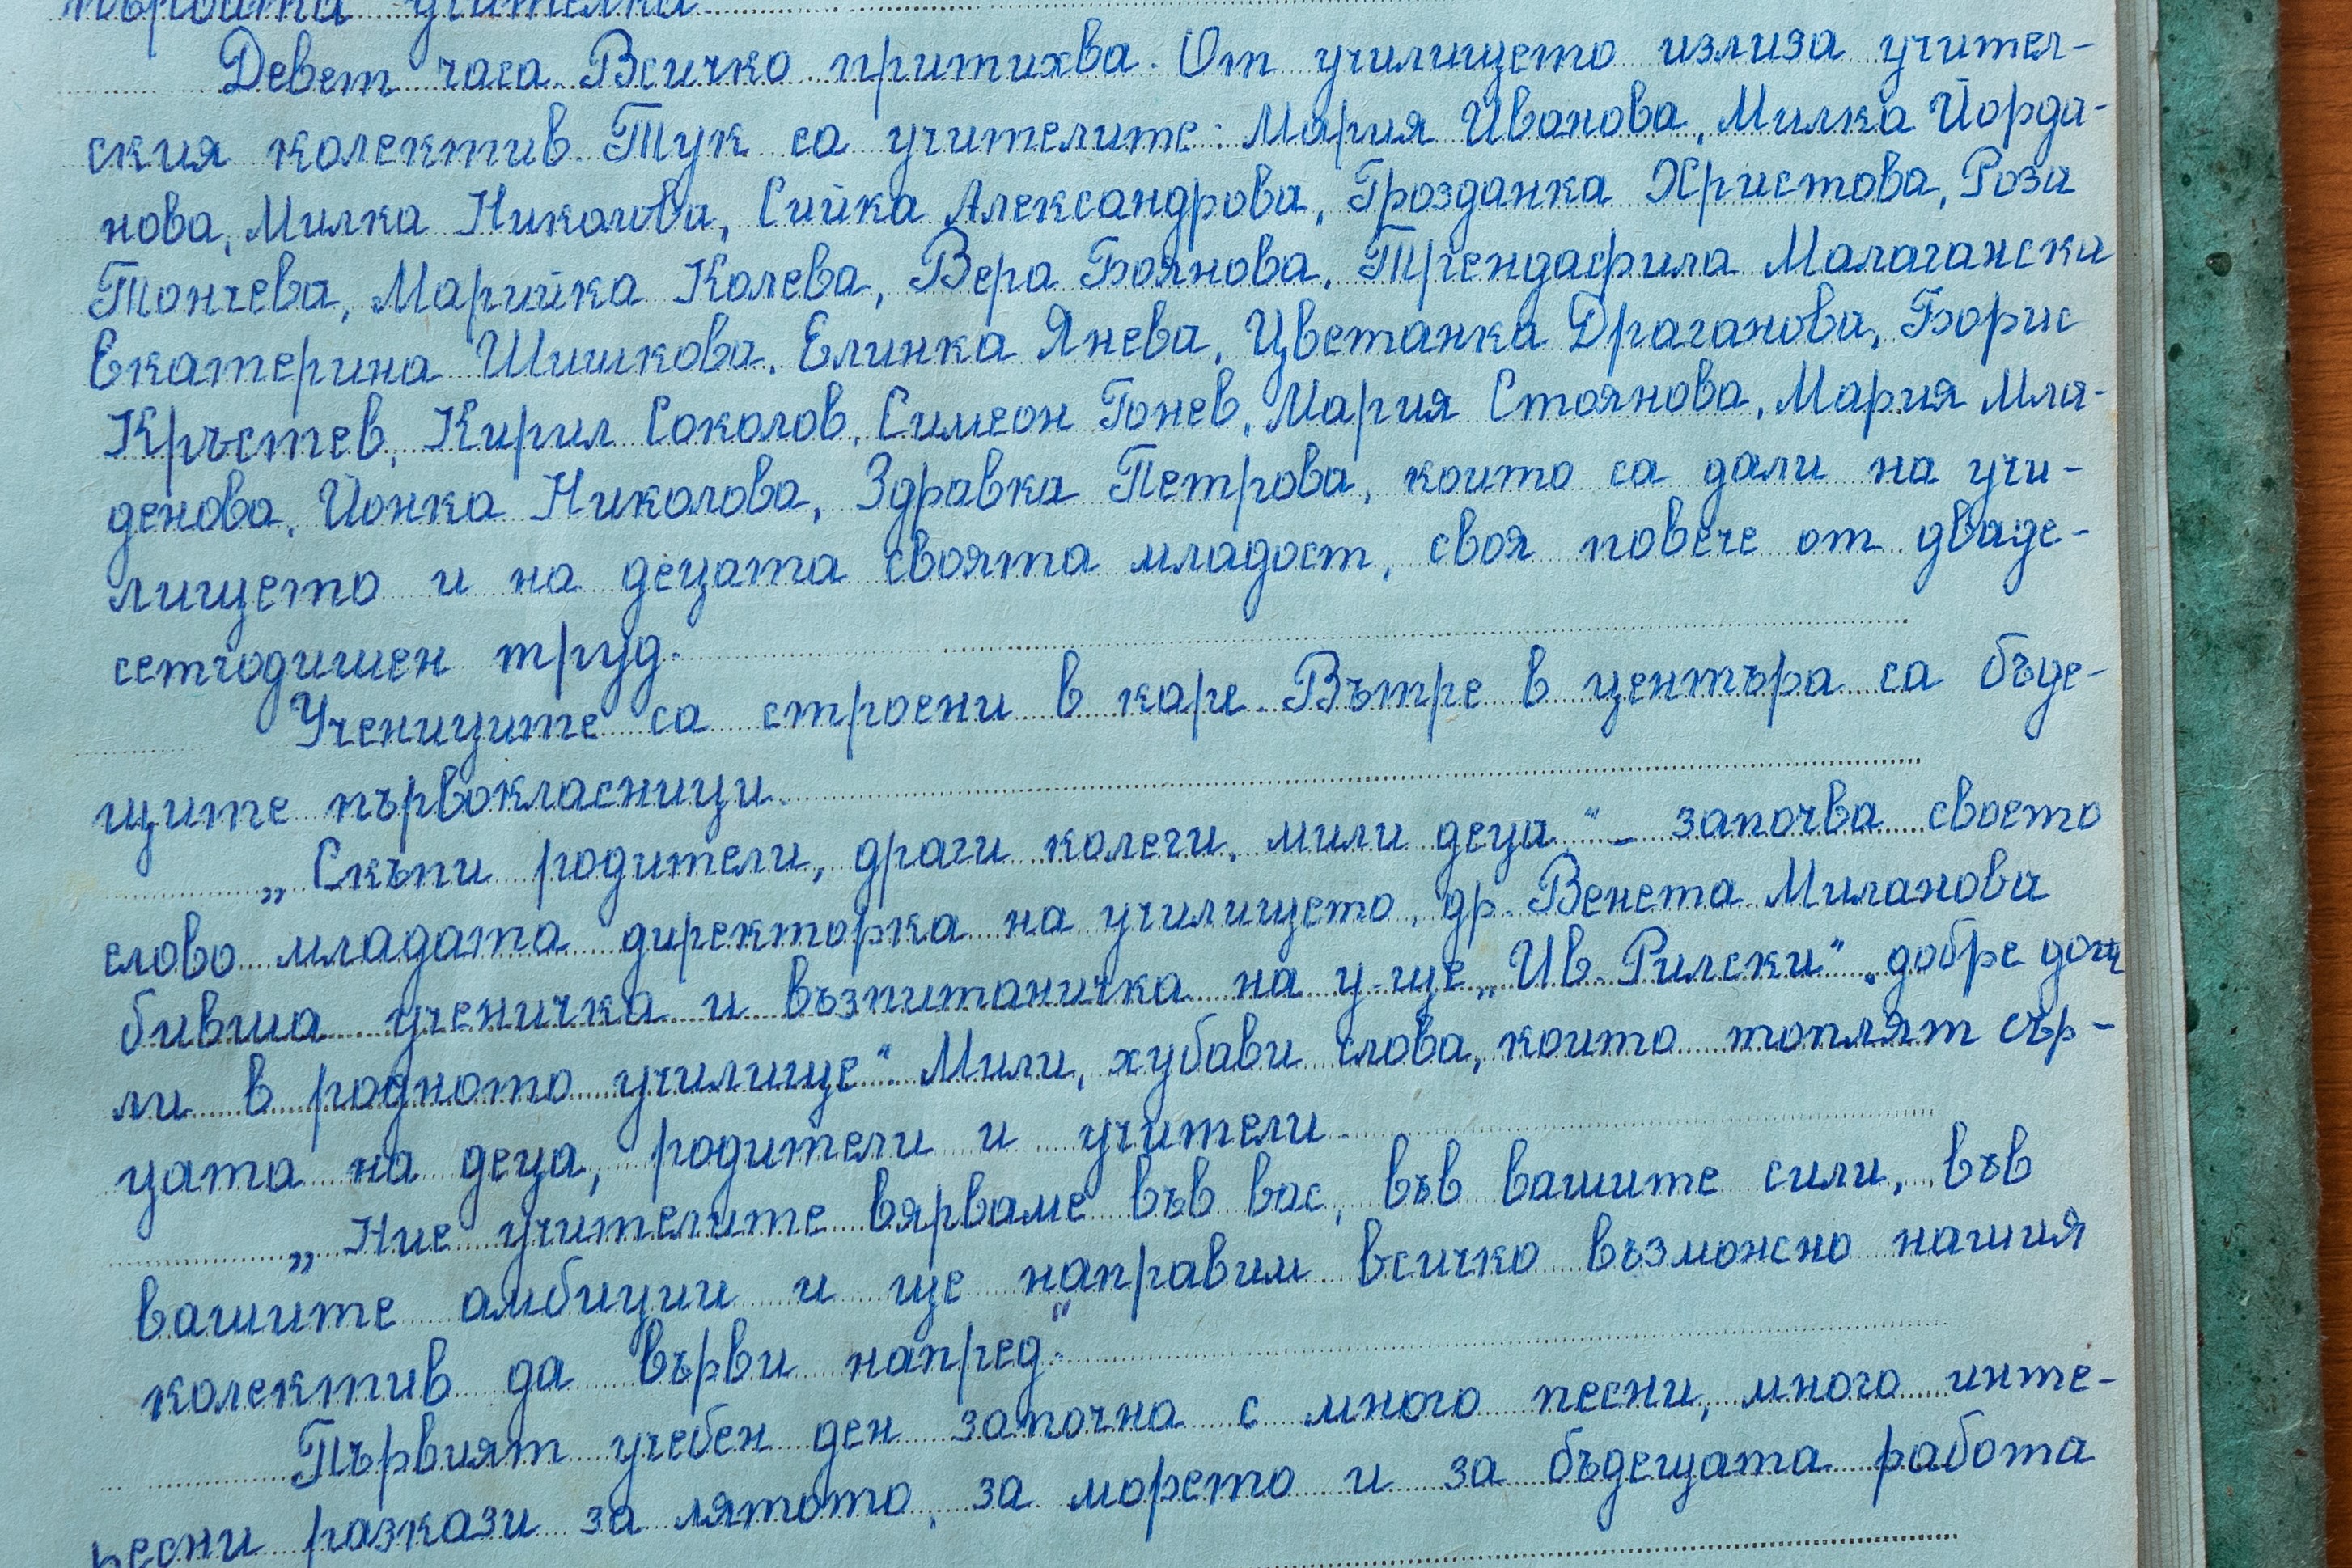 първата учителка.
Девет часа. Всичко притихва. От училището излиза учител-
ския колектив. Тук са учителите: Мария Иванова, Милка Йорда-
нова, Милка Николова, Сийка Александрова, Грозданка Христова, Роза
Тончева, Марийка Колева, Вера Боянова, Трендафила Малаганска
Екатерина Шишкова, Елинка Янева, Цветанка Драганова, Борис
Кръстев, Кирил Соколов, Симеон Гонев, Мария Стоянова, Мария Мла-
денова, Йонка Николова, Здравка Петрова, които са дали на учи-
лището и на децата своята младост, своя повече от дваде-
сетгодишен труд.
Учениците са строени в каре. Вътре в центъра са бъде-
щите първокласници.
„Скъпи родители, драги колеги, мили деца" – започва своето
слово младата директорка на училището, др. Венета Миланова
бивша ученичка и възпитаничка на у-ще „Ив. Рилски" „добре дош
ли в родното училище" Мили, хубави слова, които топлят сър-
цата на деца, родители и учители.
„Ние учителите вярваме във вас, във вашите сили, във
вашите амбиции и ще направим всичко възможно нашия
колектив да върви напред."
Първият учебен ден започна с много песни, много инте-
ресни разкази за лятото, за морето и за бъдещата работа